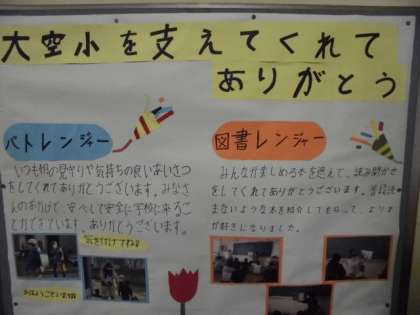 大空小を支えてくれて
ありがとう
パトレンジャー
いつも朝の見守りや気持ちの良いあいさつ
をしてくれてありがとうございます。みなさ
んのおかげで、安心して安全に学校に来るこ
とができています。ありがとうございます。
気をつけてね!!
おはようございます
図書レンジャー
みんなが楽しめる本を選んで、読み聞かせ
をしてくれてありがとうございます。普段読
まないような本を紹介してもらって、より本
が好きになりました。